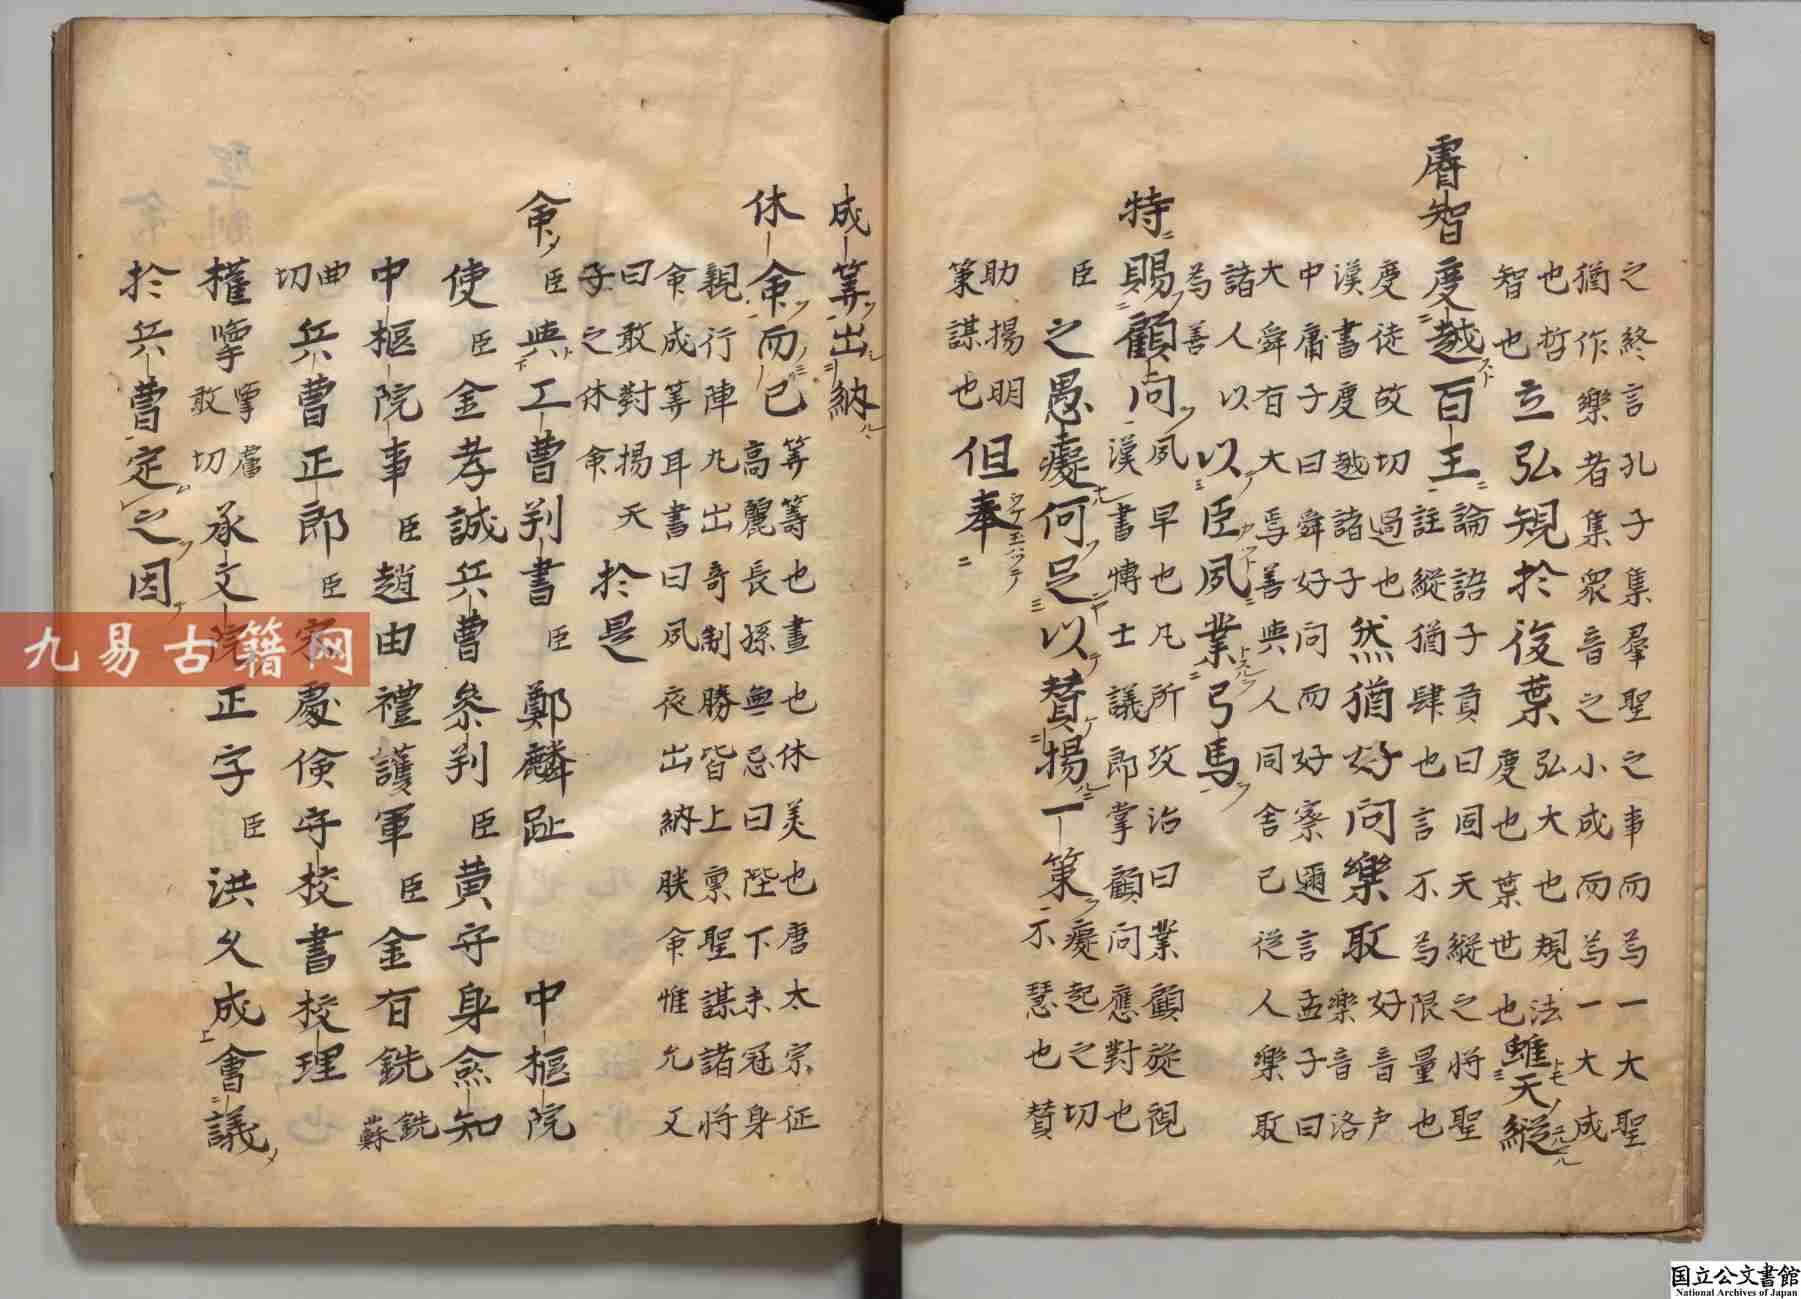 之終言孔子集羣聖之事而為一大聖
猶作樂者集衆音之小成而為一大成
也哲智也立弘規於後葉弘大也規法度也葉世也雖天縱
睿智度越百王論語子貢曰固天縱之將聖註縱猶肆也言不為限量也
度徒故切過也漢書度越諸子然猶好問樂取好音声樂音洛
中庸子曰舜好問而好察邇言孟子曰
大舜有大焉善與人同舍己從人樂取
諸人以為善以臣夙業弓馬
特賜顧問夙早也凡所攻治曰業顧旋視漢書博士議郎掌顧問應對也
臣之愚癡何足以賛揚一策癡起之切不慧也賛
助揚明策謀也但奉
成筭出納
休命而已筭筭籌也畫也休美也唐太宗征高麗長孫無忌曰陛下未冠身
親行陣凢出奇制勝皆上禀聖謀諸将
奉成筭耳書曰夙夜出納朕命惟允又
曰敢對揚天子之休命於是
命臣與工曹判書臣鄭麟趾中樞院
使臣金孝誠兵曹叅判臣黄守身僉知
中樞院事臣趙由禮護軍臣金有銑銑蘇
典切兵曹正郎臣宋處倹守校書校理
權擥擥魯敢切承文院正字臣洪久成會議
於兵曹定之因
九易古籍网
国立公文書館
National Archives of Japan